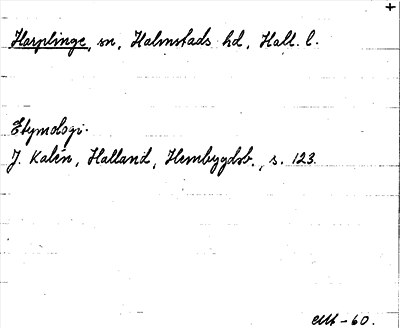 +
Harplinge, sn, Halmstads hd, Hall. l.
Etymologi.
J. Kalén, Halland, Hembygdsb., s. 123.
-60.